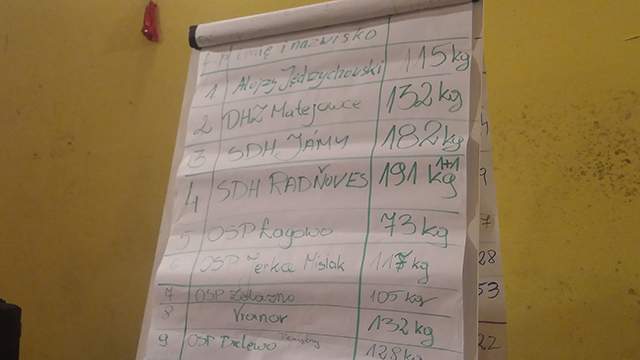 imię i nazwisko
1 Alojzy Jędrzychowski 115kg
2 DHZ Matejovce 132kg
3 SDH JÁMY 182kg
4 SDH RADŇOVES 191 kg 1+1
5 OSP Łagowo 73kg
OSP Jerka Mislak 117kg
7 OSP Żelazno 105kg
8 Vianor 132kg
9 OSP 128kg
9
7
28
53
22